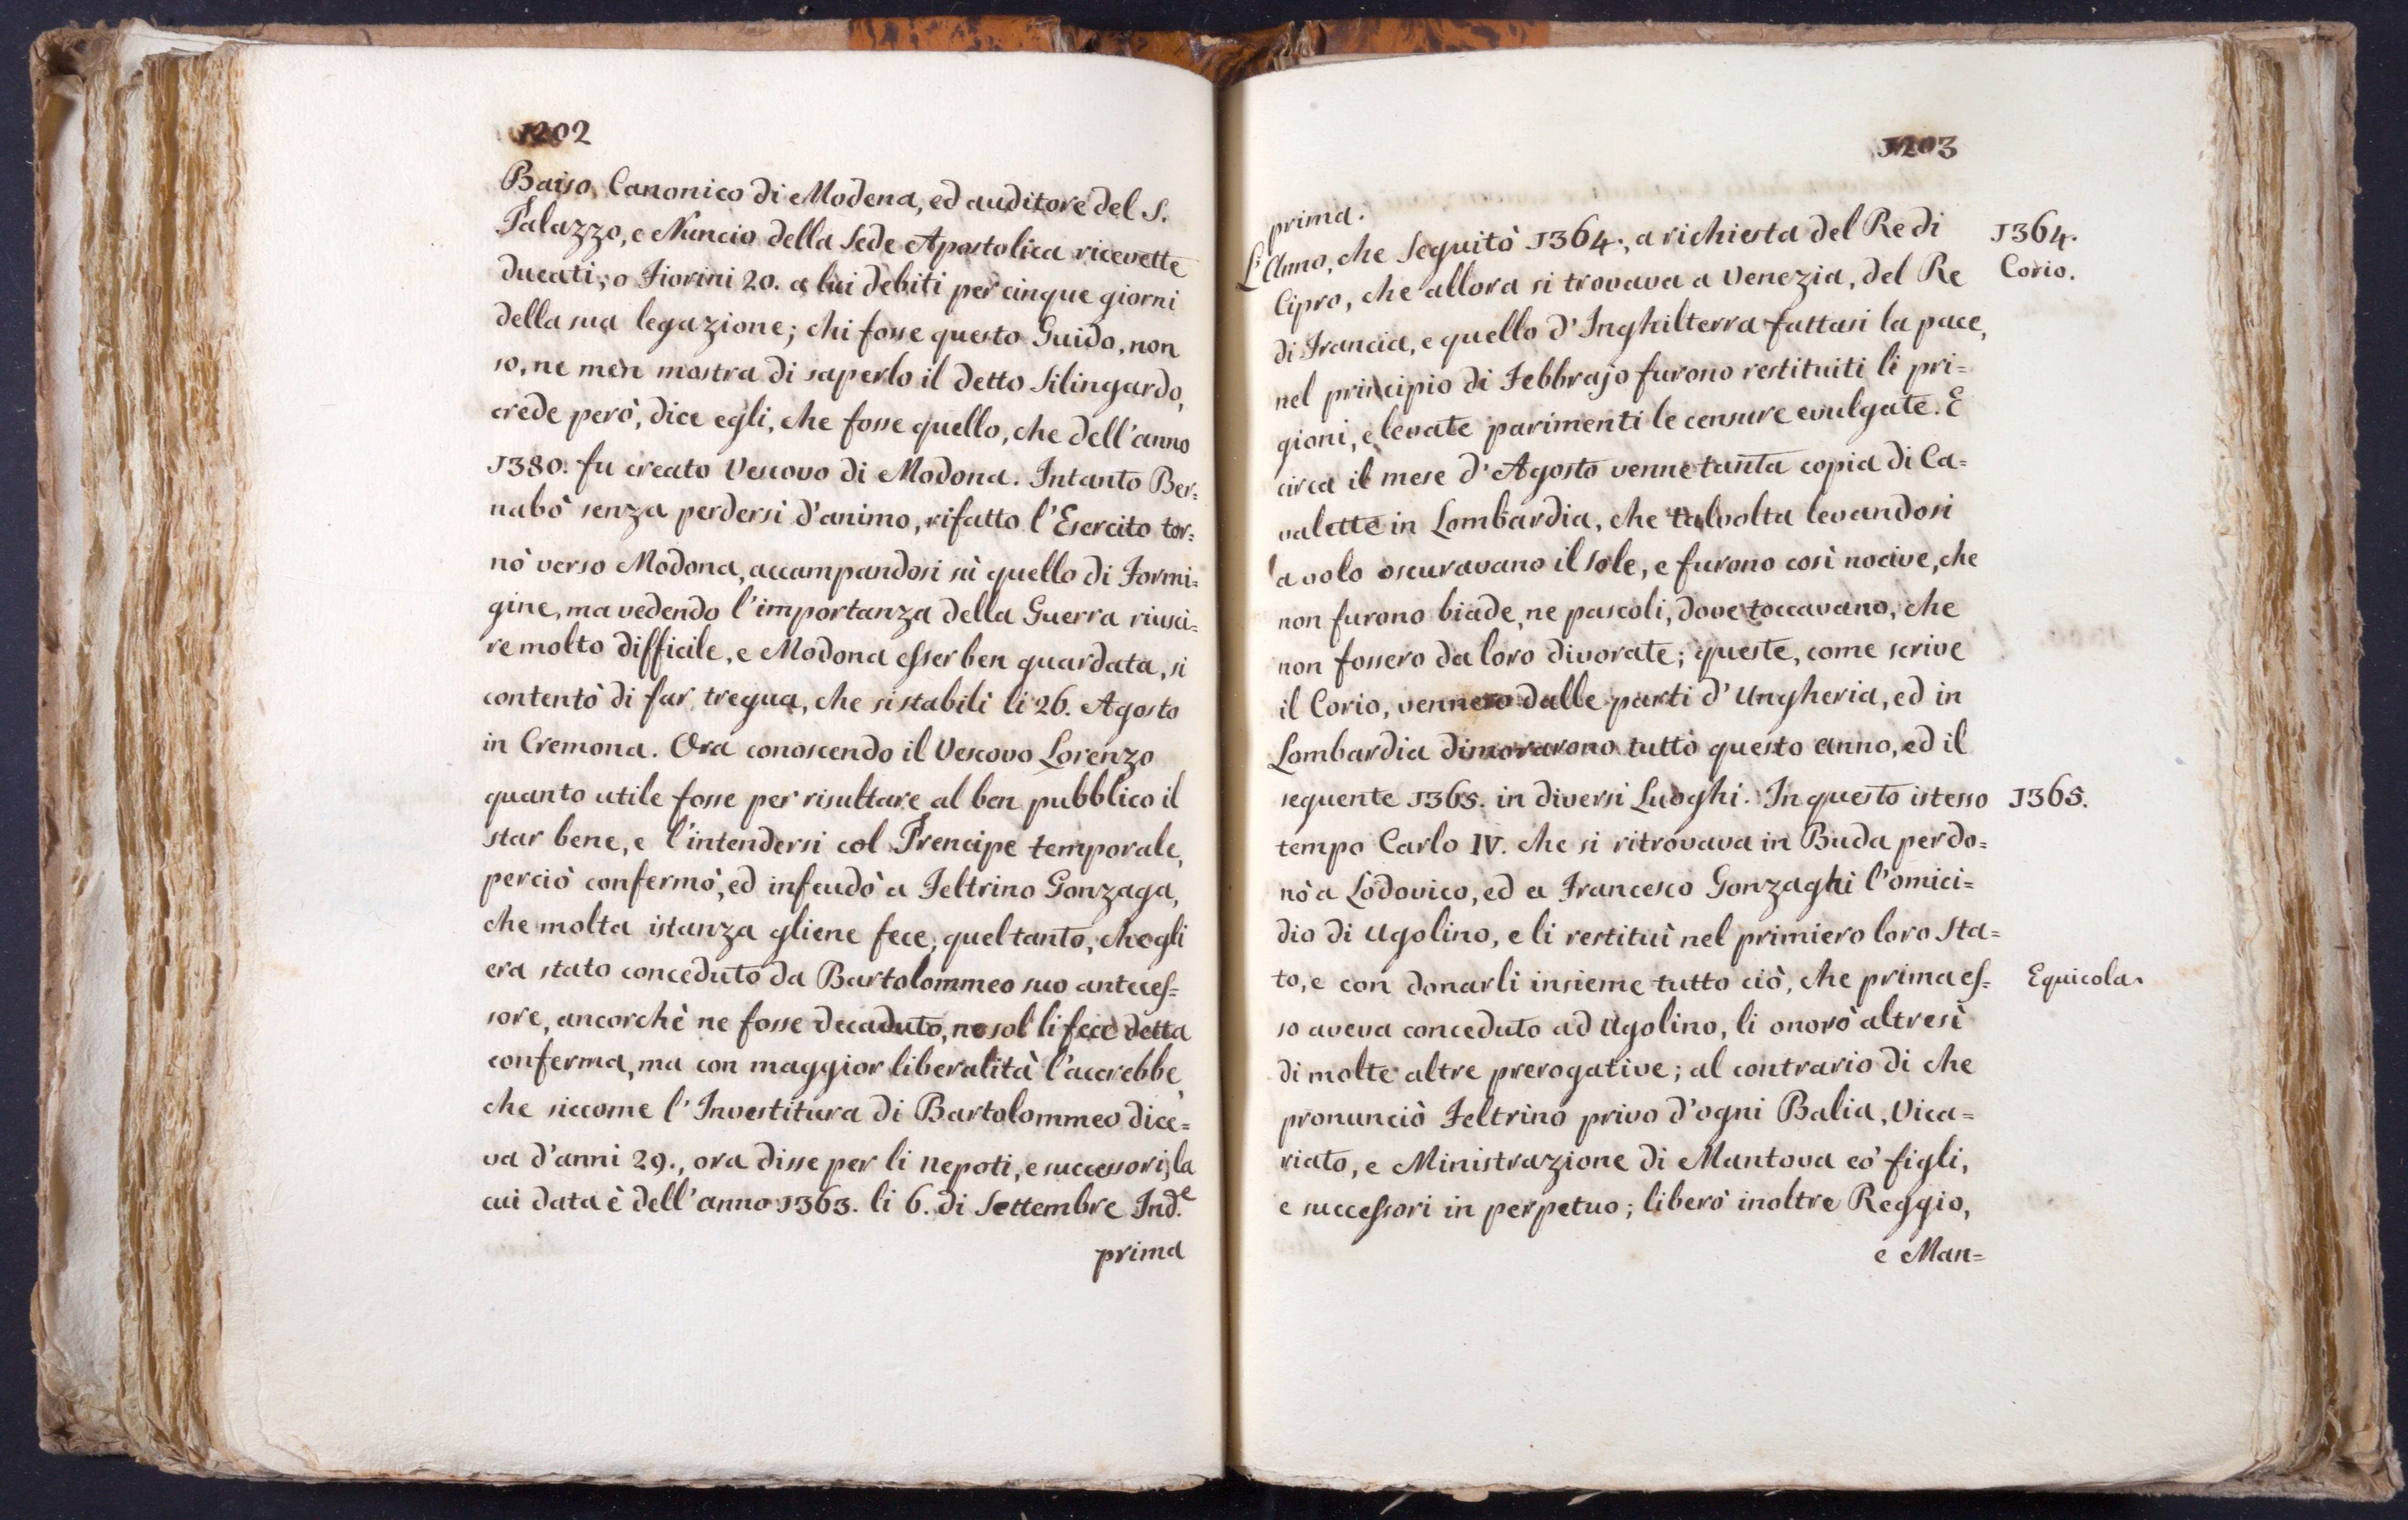 1202
Baiso, Canonico di Modena, ed auditore del S.
Palazzo, e Nuncio della Sede Apostolica ricevette
ducati, o Fiorini 20. a lui debiti per cinque giorni
della sua legazione; chi fosse questo Guido, non
so, ne men mostra di saperlo il detto Silingardo,
crede però, dice egli, che fosse quello, che dell'anno
1380. fu creato Vescovo di Modona. Intanto Ber=
nabò senza perdersi d'animo, rifatto l'Esercito tor=
nò verso Modona, accampandosi sù quello di Formi=
gine, ma vedendo l'importanza della Guerra riusci=
re molto difficile, e Modona esser ben guardata, si
contentò di far tregua, che si stabilì li 26. Agosto
in Cremona. Ora conoscendo il Vescovo Lorenzo
quanto utile fosse per risultare al ben pubblico il
star bene, e l'intendersi col Prencipe temporale,
perciò confermò, ed infeudò a Feltrino Gonzaga,
che molta istanza gliene fece, quel tanto, che gli
era stato conceduto da Bartolommeo suo anteces=
sore, ancorchè ne fosse decaduto, ne sol li fece detta
conferma, ma con maggior liberalità l'accrebbe,
che siccome l'Investitura di Bartolommeo dice=
va d'anni 29., ora disse per li nepoti, e successori; la
cui data è dell'anno 1363. li 6. di Settembre Ind.e
prima
1203
prima.
L'Anno, che seguitò 1364., a richiesta del Re di
1364.
Cipro, che allora si trovava a Venezia, del Re
Corio.
di Francia, e quello d'Inghilterra fattasi la pace,
nel principio di Febbrajo furono restituiti li pri=
gioni, e levate parimenti le censure evulgate. E
circa il mese d'Agosto venne tanta copia di Ca=
valette in Lombardia, che talvolta levandosi
a volo oscuravano il sole, e furono così nocive, che
non furono biade, ne pascoli, dove toccavano, che
non fossero da loro divorate; queste, come scrive
il Corio, vennero dalle parti d'Ungheria, ed in
Lombardia dimorarono tutto questo anno, ed il
seguente 1365. in diversi Luoghi. In questo istesso
1365.
tempo Carlo IV. che si ritrovava in Buda perdo=
nò a Lodovico, ed a Francesco Gonzaghi l'omici=
dio di Ugolino, e li restituì nel primiero loro Sta=
to, e con donarli insieme tutto ciò, che prima es=
Equicola.
so aveva conceduto ad Ugolino, li onorò altresì
di molte altre prerogative; al contrario di che
pronunciò Feltrino privo d'ogni Balia, Vica=
riato, e Ministrazione di Mantova co' figli,
e successori in perpetuo; liberò inoltre Reggio,
e Man=